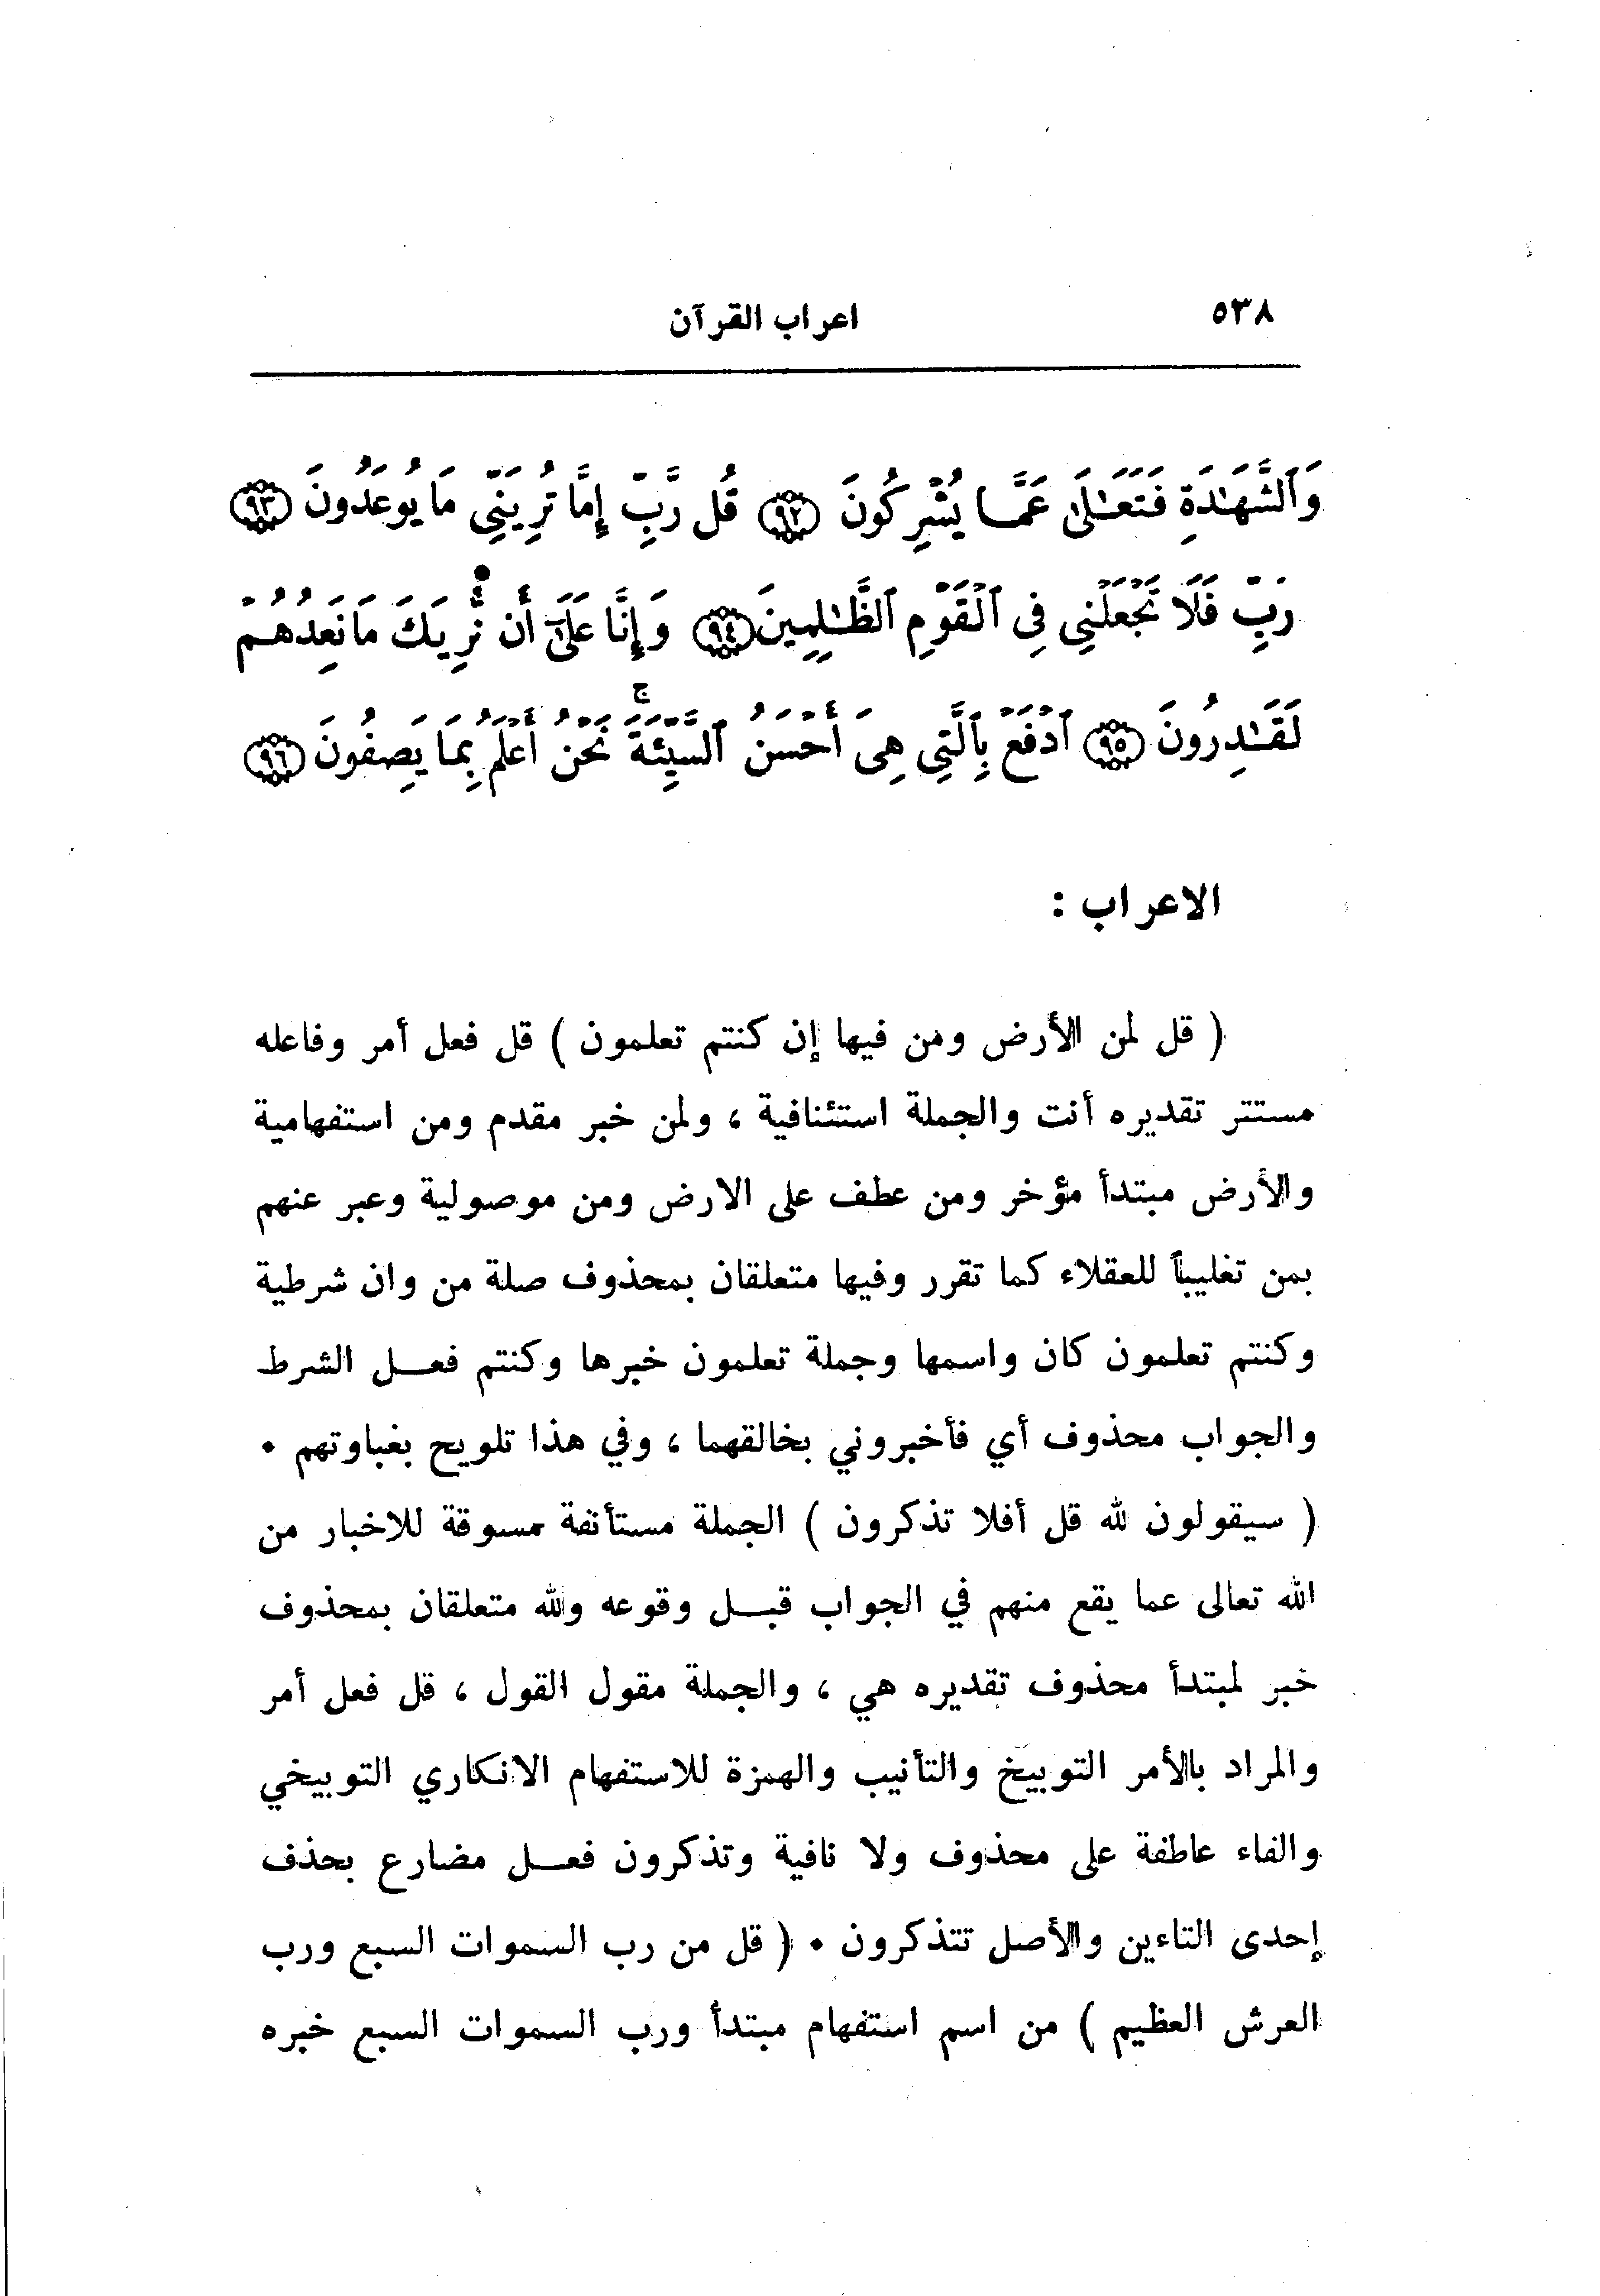 ٥٣٨ اعراب القرآن
وَٱلشَّهَٰدَةِ فَتَعَٰلَىٰ عَمَّا يُشْرِكُونَ ۝٩٢ قُل رَّبِّ إِمَّا تُرِيَنِّي مَا يُوعَدُونَ ۝٩٣
رَبِّ فَلَا تَجْعَلْنِي فِي ٱلْقَوْمِ ٱلظَّٰلِمِينَ ۝٩٤ وَإِنَّا عَلَىٰٓ أَن نُّرِيَكَ مَا نَعِدُهُمْ
لَقَٰدِرُونَ ۝٩٥ ٱدْفَعْ بِٱلَّتِي هِيَ أَحْسَنُ ٱلسَّيِّئَةَۚ نَحْنُ أَعْلَمُ بِمَا يَصِفُونَ ۝٩٦
الاعراب :
( قل لمن الأرض ومن فيها إن كنتم تعلمون ) قل فعل أمر وفاعله
مستتر تقديره أنت والجملة استئنافية ، ولمن خبر مقدم ومن استفهامية
والأرض مبتدأ مؤخر ومن عطف على الارض ومن موصولية وعبر عنهم
بمن تغليباً للعقلاء كما تقرر وفيها متعلقان بمحذوف صلة من وان شرطية
وكنتم تعلمون كان واسمها وجملة تعلمون خبرها وكنتم فعـــل الشرط
والجواب محذوف أي فأخبروني بخالقهما ، وفي هذا تلويح بغباوتهم ٠
( سيقولون لله قل أفلا تذكرون ) الجملة مستأنفة مسوقة للاخبار من
الله تعالى عما يقع منهم في الجواب قبـــل وقوعه ولله متعلقان بمحذوف
خبر لمبتدأ محذوف تقديره هي ، والجملة مقول القول ، قل فعل أمر
والمراد بالأمر التوبيخ والتأنيب والهمزة للاستفهام الانكاري التوبيخي
والفاء عاطفة على محذوف ولا نافية وتذكرون فعـــل مضارع بحذف
إحدى التاءين والأصل تتذكرون ٠ ( قل من رب السموات السبع ورب
العرش العظيم ) من اسم استفهام مبتدأ ورب السموات السبع خبره